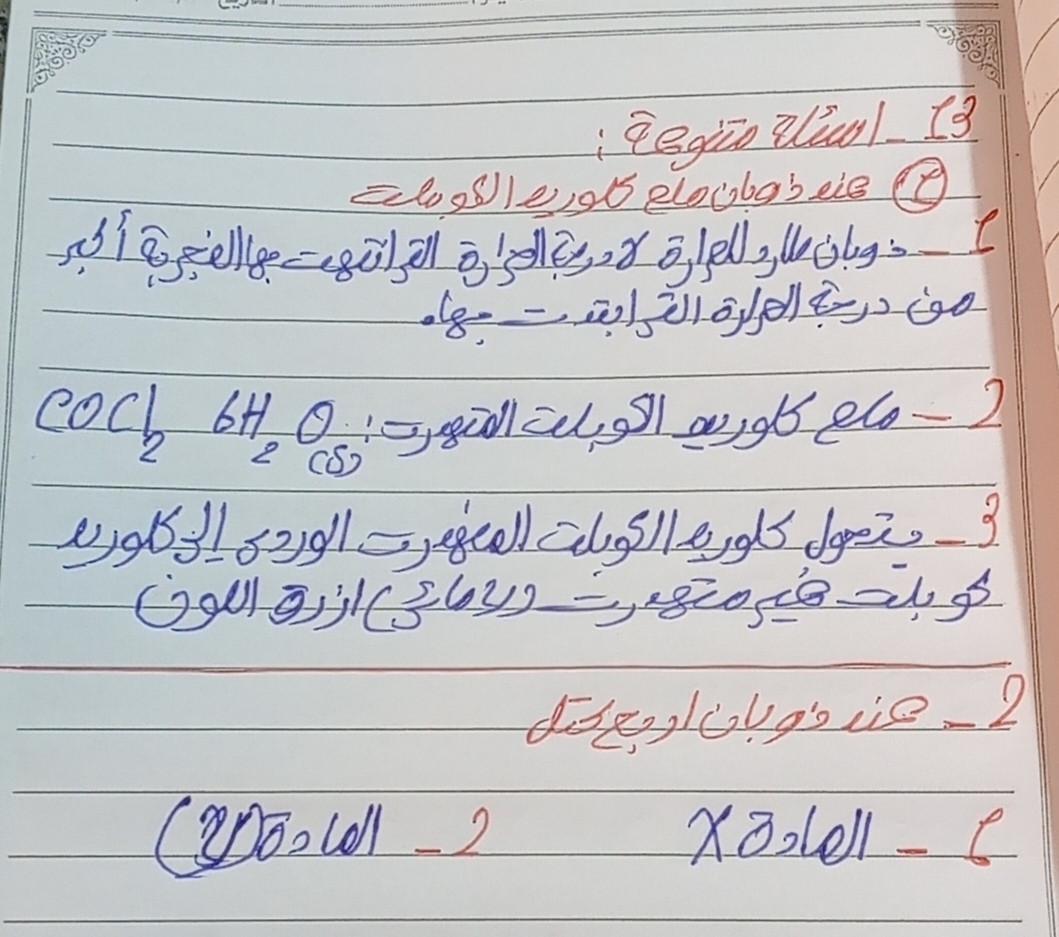 13 - اسئلة متنوعة :
① عند ذوبان ملح كلوريد الكوبلت
1 - ذوبان طارد للحرارة لا درجة الحرارة التي انتهت بها التجربة أكبر
من درجة الحرارة التي ابتدت بها.
2 - ملح كلوريد الكوبلت المتهدرت : COCl2 6H2O(s)
3 - يتحول كلوريد الكوبلت المتهدرت الوردي إلى كلوريد
كوبلت غير متهدرت (لا مائي) ازرق اللون
2 - عند ذوبان اربع كتل
1 - المادة X 2 - المادة (y)